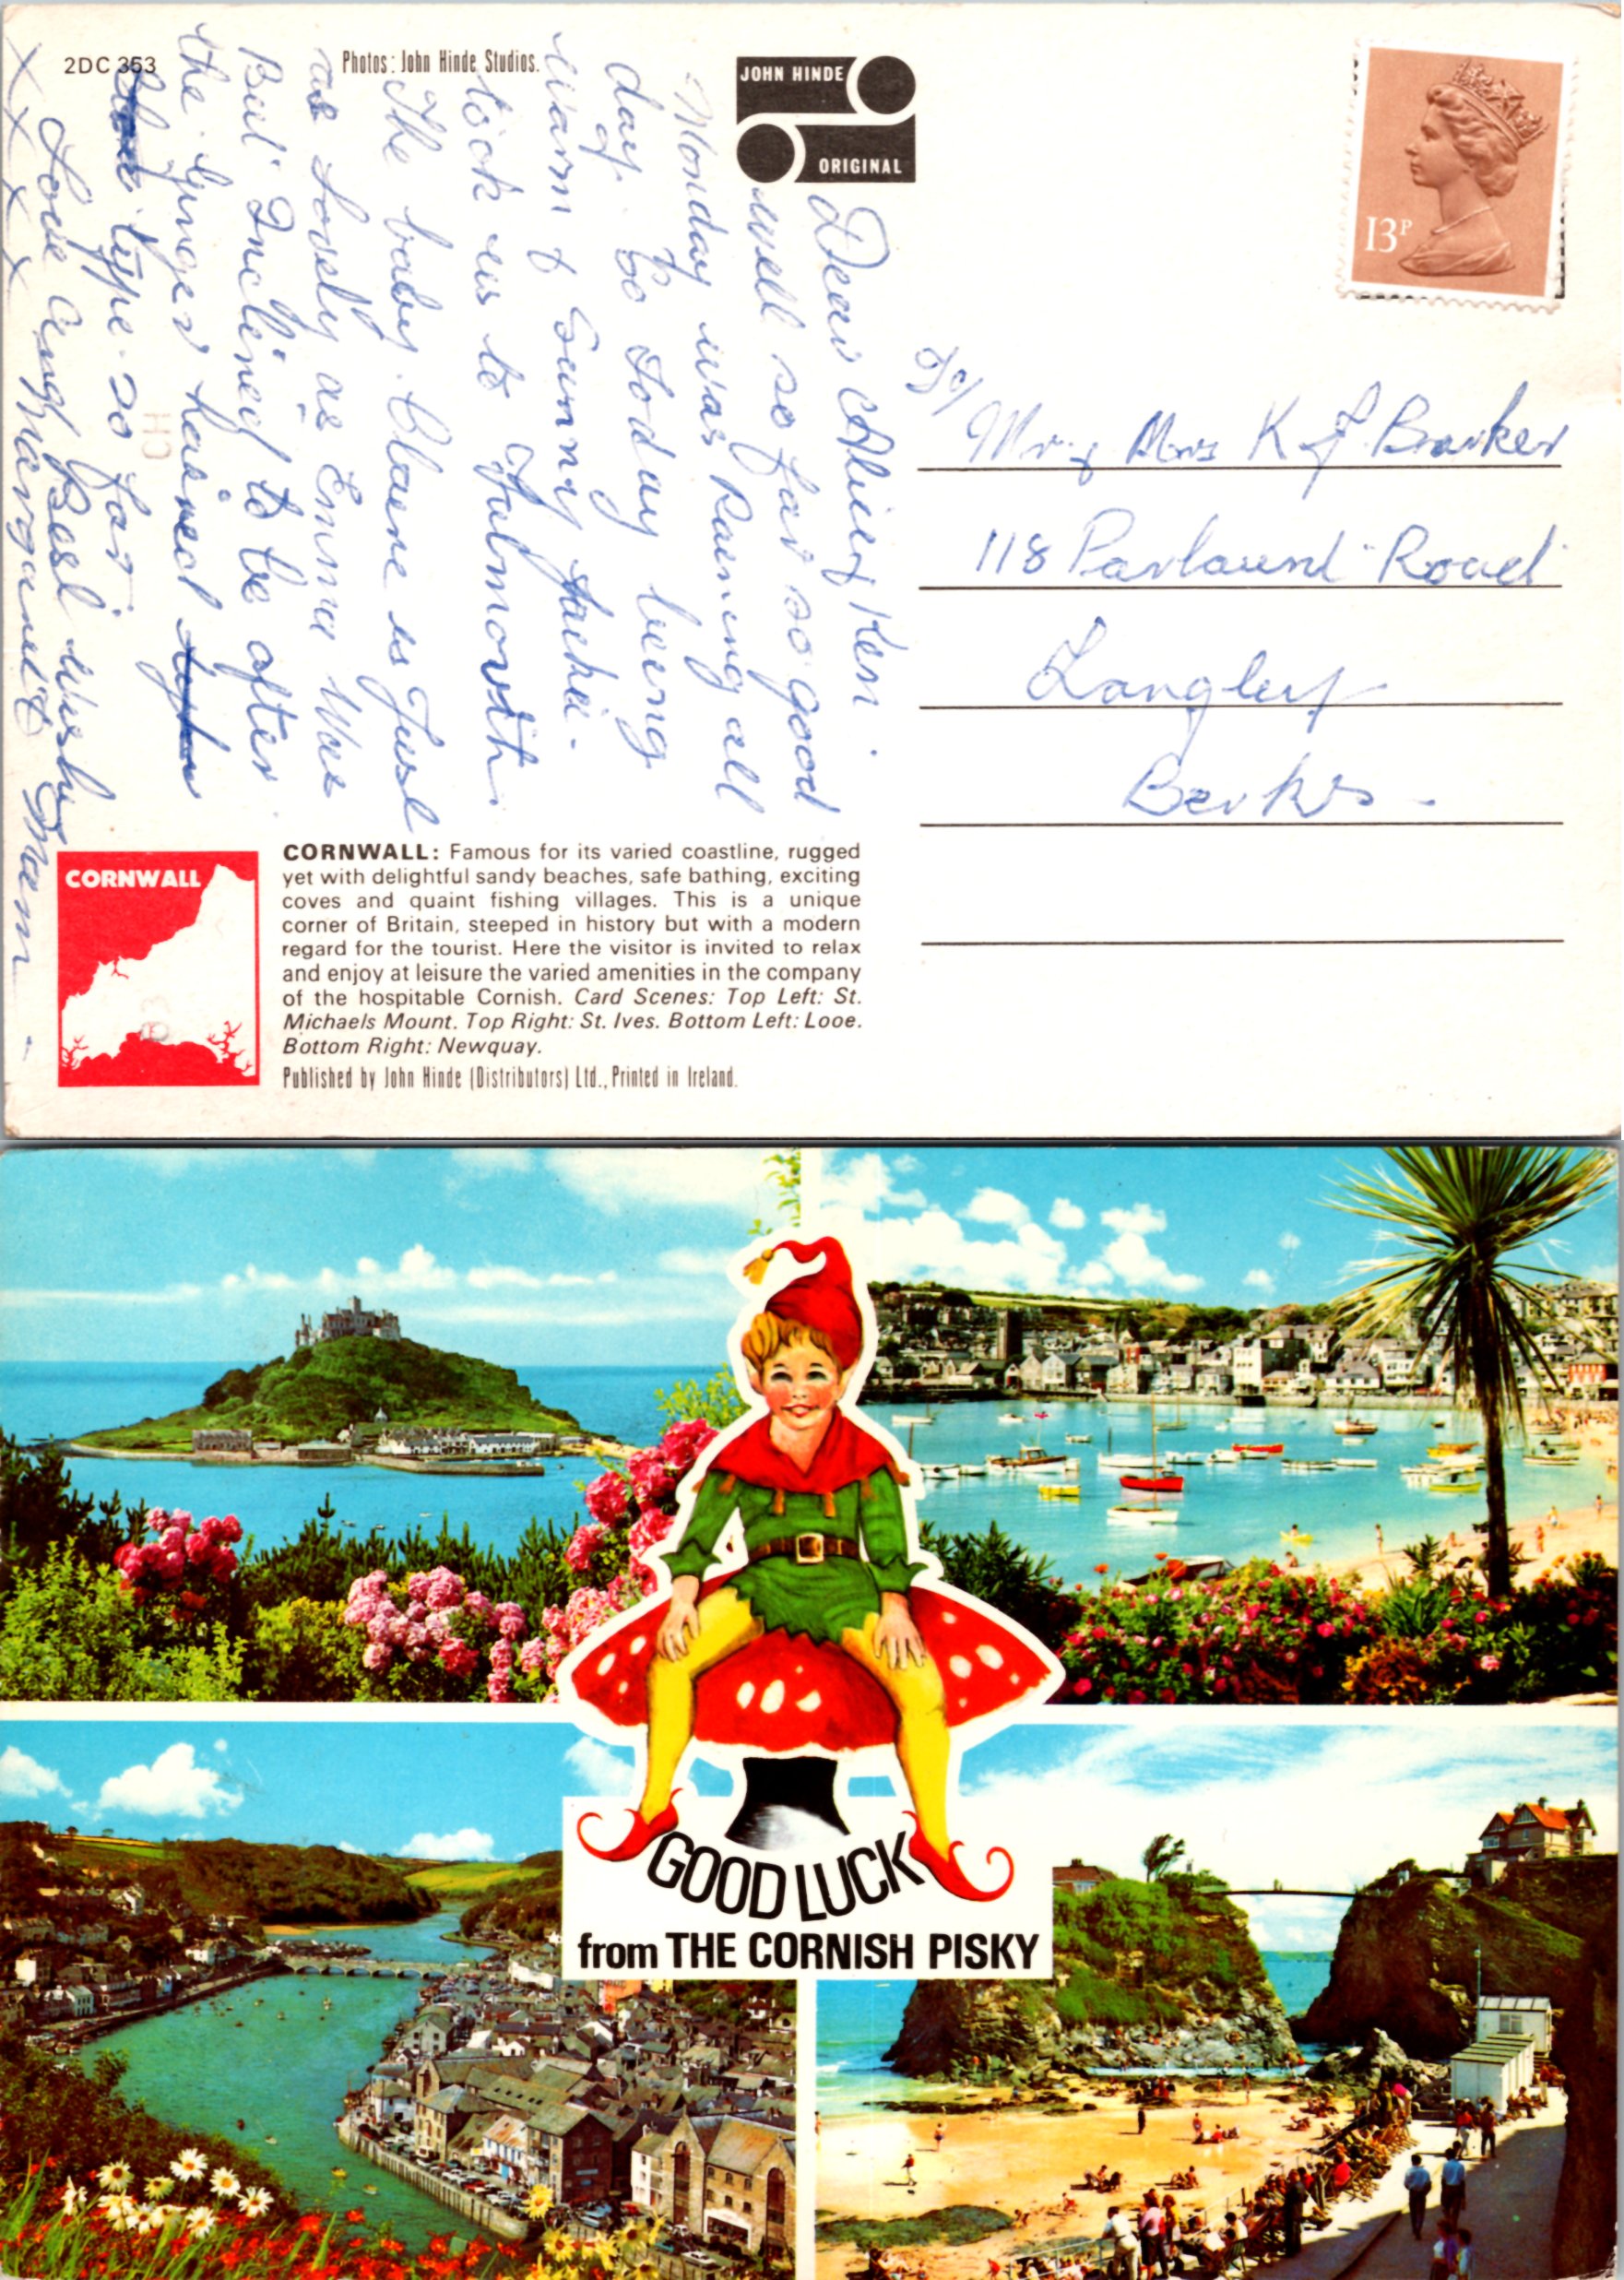 2DC 353
Photos: John Hinde Studios.
JOHN HINDE
ORIGINAL
13P
Dear Aliey Ken
well so far so good
Monday was Raining all
day. So Today being
warm & Sunny Jackie.
took us to Falmouth.
The baby. Claire is Just
as Lovely as Emma Was
But Inclined to be after
the Ginger haired
type. so far.
Love and Best Wishes
Margaret & Mam -
X X X X X
To/
Mr & Mrs K J. Barker
118 Parlaunt Road
Langley
Berks -
CORNWALL
CORNWALL: Famous for its varied coastline, rugged
yet with delightful sandy beaches, safe bathing, exciting
coves and quaint fishing villages. This is a unique
corner of Britain, steeped in history but with a modern
regard for the tourist. Here the visitor is invited to relax
and enjoy at leisure the varied amenities in the company
of the hospitable Cornish. Card Scenes: Top Left: St.
Michaels Mount. Top Right: St. Ives. Bottom Left: Looe.
Bottom Right: Newquay.
Published by John Hinde (Distributors) Ltd., Printed in Ireland.
GOOD LUCK
from THE CORNISH PISKY